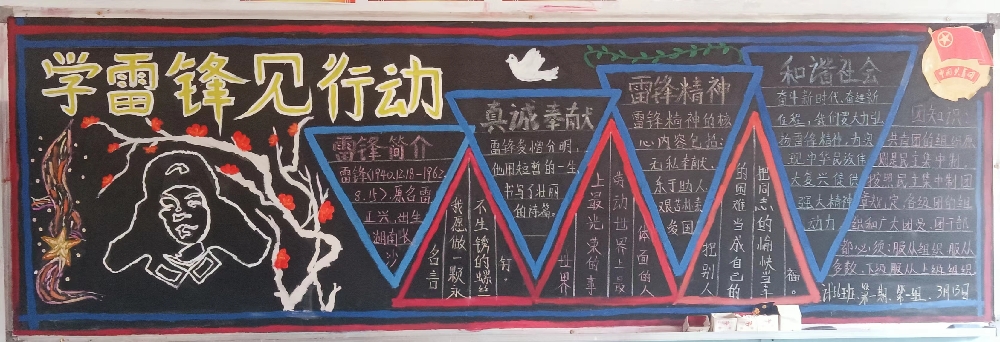 学雷锋见行动
雷锋简介
雷锋(1940.12.18-1962
8.15),原名雷
正兴,出生
湖南长
沙
名言
我愿做一颗永
不生锈的螺丝
钉。
真诚奉献
雷锋爱憎分明,
他用短暂的一生
书写了壮丽
的诗篇。
世界
上最光荣的事
劳动世界上最
体面的人
雷锋精神
雷锋精神的核
心内容包括:
无私奉献、
乐于助人、
艰苦
爱国
把别人
的困难当成自己的
把同志的愉快当
和谐社会
奋斗新时代,奋进新
征程,我们要大力弘
扬雷锋精神,为实
现中华民族伟
大复兴提供
强大精神
动力
团知识:
共青团的组织原
则是民主集中制,
按照民主集中制
章程,定,各级团的组
织和广大团员、团干部
都必须:服从组织,服从
多数,下级服从上级组织
第一期 第一组 3月15日